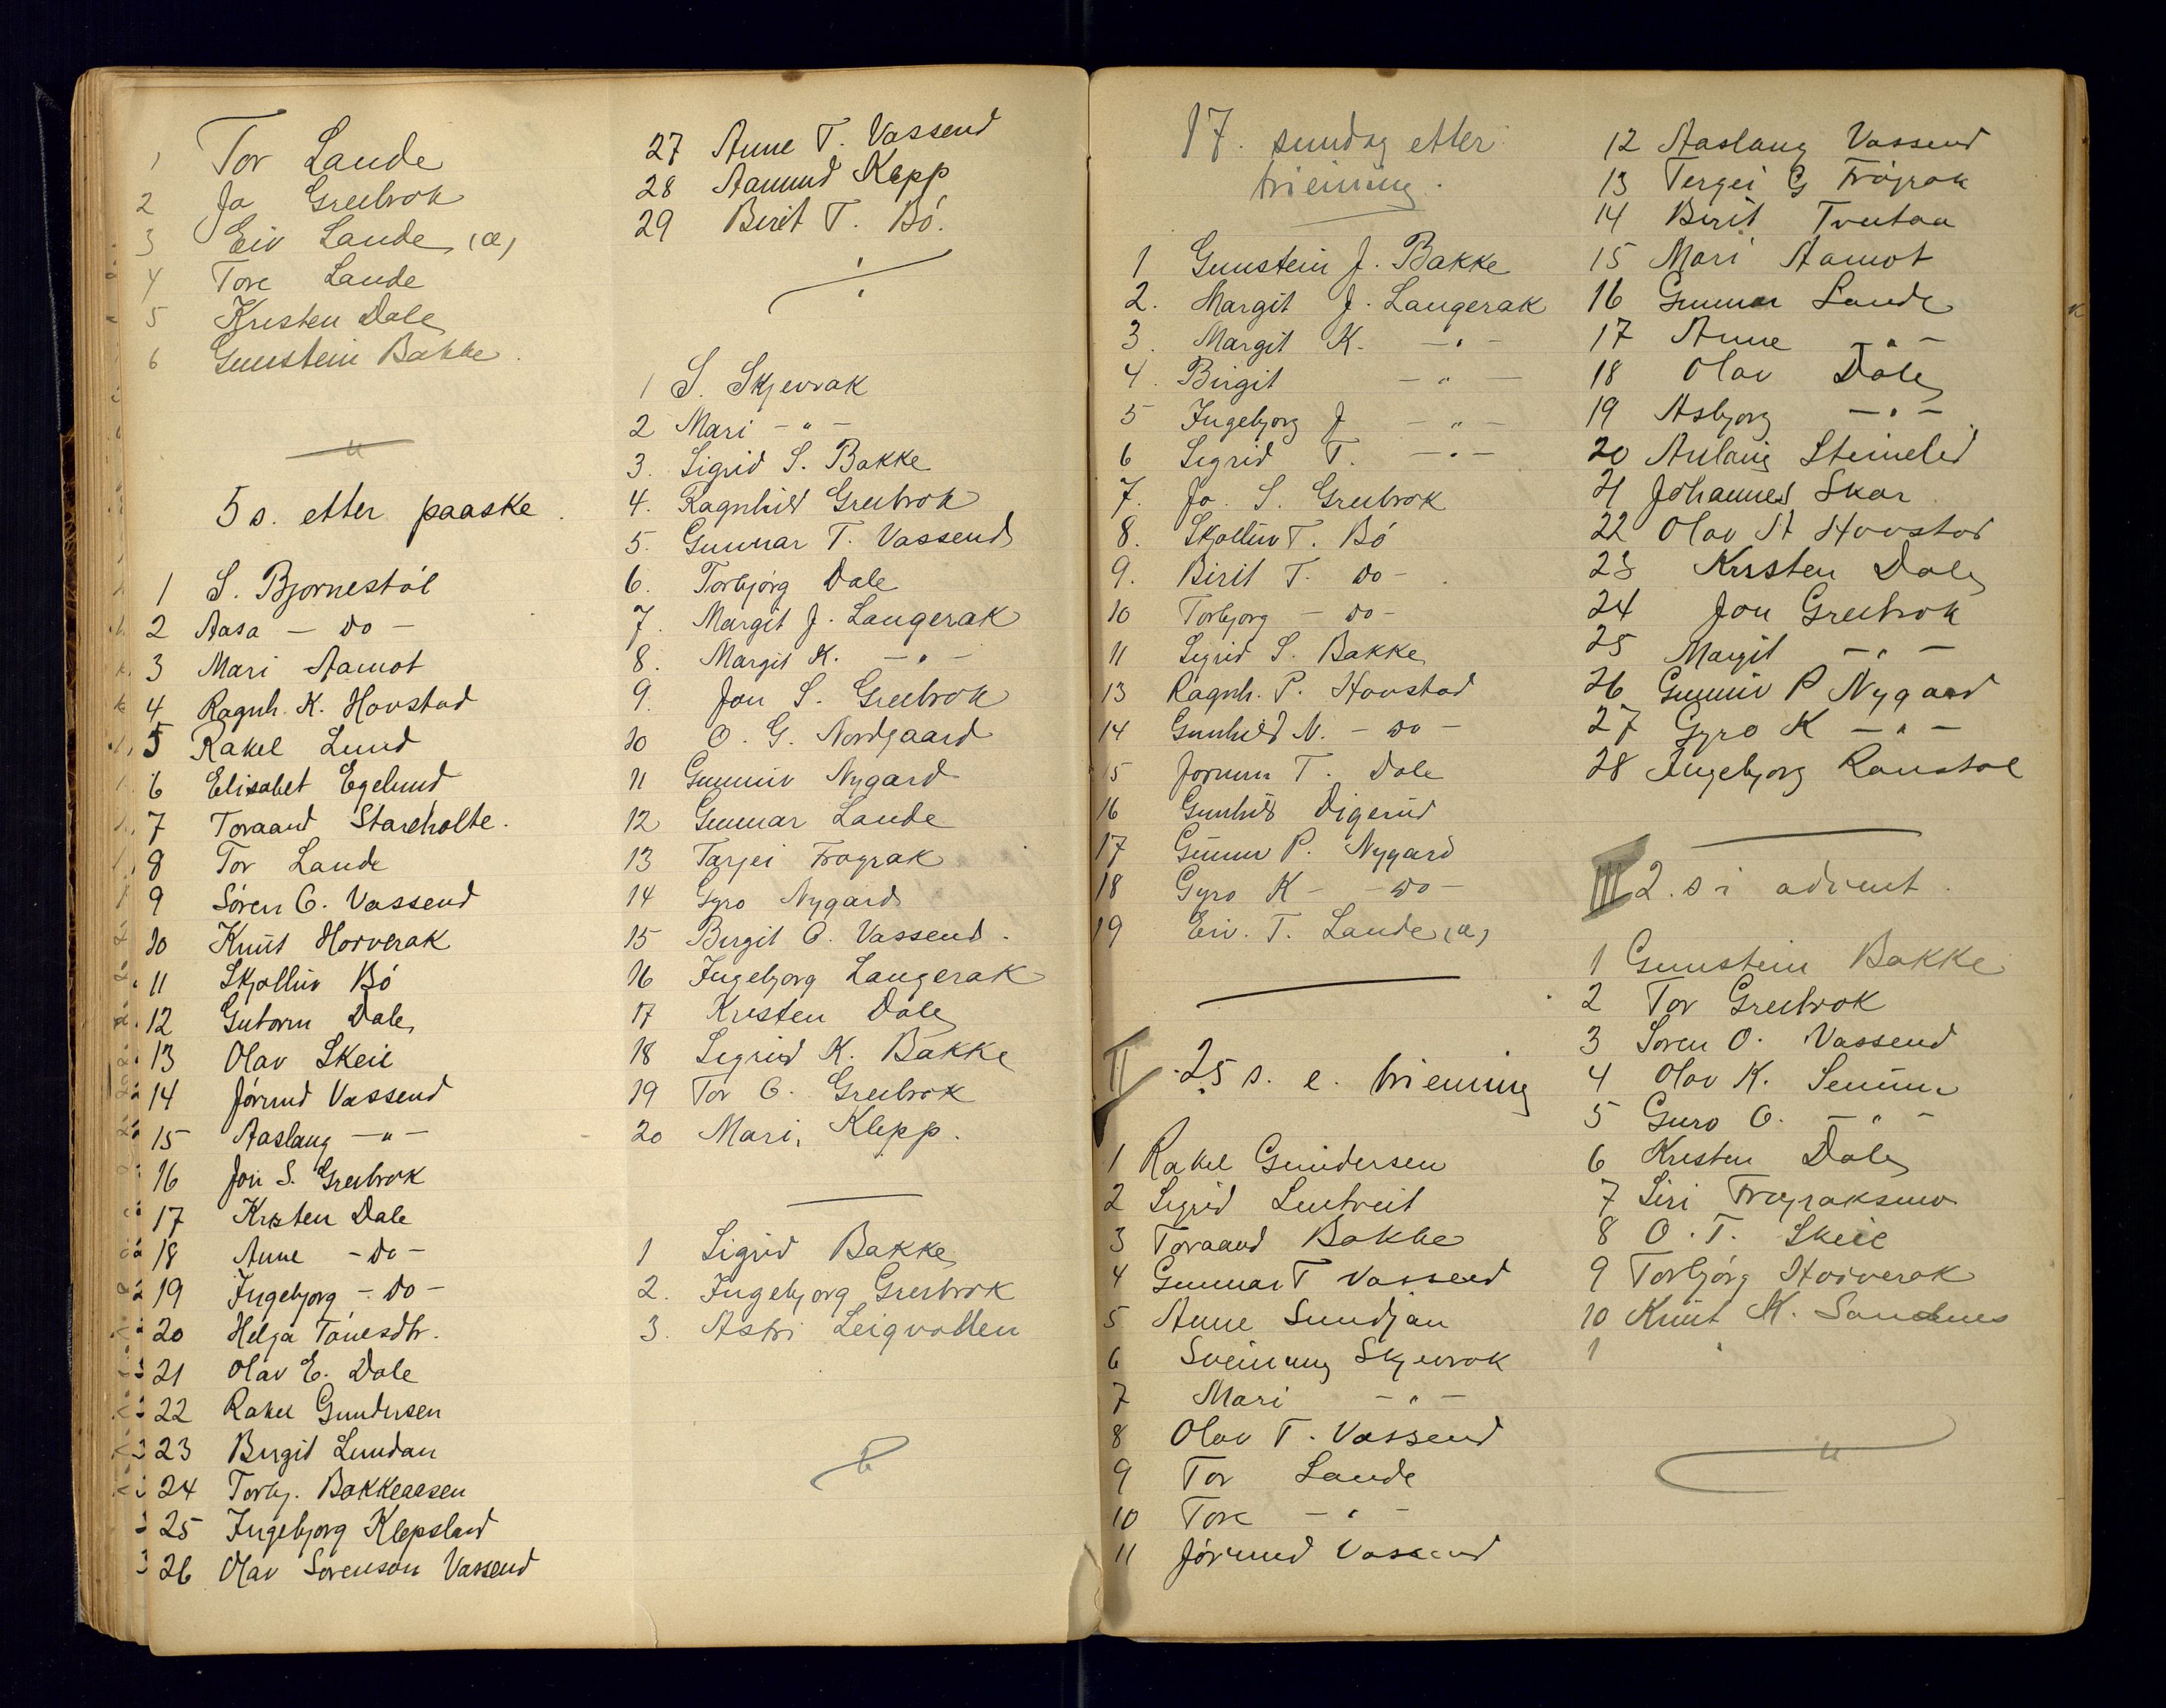 1 Tor Lande
2 Jo Greibrok
3 Eiv Lande (a)
4 Tore Lande
5 Kristen Dale
6 Gunstein Bakke.
— " —
5 s. etter paaske.
1 S. Bjornestøl
2 Aasa — do —
3 Mari Aamot
4 Ragnh. K. Hovstad
5 Rakel Lund
6 Elisabet Egelund
7 Toraand Stareholte.
8 Tor Lande
9 Søren O. Vassend
10 Knut Horverak
11 Skjølluv Bø
12 Gutorm Dale
13 Olav Skeie
14 Jørund Vassend
15 Aaslaug — " —
16 Jon S. Greibrok
17 Kristen Dale
18 Anne — do —
19 Ingebjorg — do —
20 Helga Tønesdtr.
21 Olav E. Dale
22 Rakel Gundersen
23 Birgit Lundan
24 Torbj. Bakkeaasen
25 Ingebjorg Klepsland
26 Olav Sørenson Vassend
27 Anne T. Vassend
28 Aamund Kepp
29 Birit T. Bø.
1 S. Skjevrak
2 Mari — " —
3. Sigrid S. Bakke
4. Ragnhild Greibrok
5. Gunnar T. Vassend
6. Torbjørg Dale
7. Margit J. Langerak
8. Margit K. — " —
9. Jon S. Greibrok
10 O. G. Nordgaard
11 Gunnuv Nygard
12 Gunnar Lande
13 Tarjei Frøyrak
14 Gyro Nygard
15 Birgit O. Vassend.
16 Ingebjorg Langerak
17 Kristen Dale
18 Sigrid K. Bakke
19 Tor O. Greibrok
20 Mari Klepp.
1 Sigrid Bakke
2. Ingebjorg Greibrok
3. Astri Leigvollen
17. sundag etter
trieining.
1 Gunstein J. Bakke
2. Margit J. Langerak
3. Margit K. — " —
4. Birgit — " —
5 Ingebjorg J — " —
6 Sigrid T. — " —
7. Jo. S. Greibrok
8. Skjølluv T. Bø
9. Birit T. do —
10 Torbjorg — do —
11 Sigrid S. Bakke
13 Ragnh. P. Hovstad
14 Gunhild N. — do —
15 Jorunn T. Dale
16 Gunhild Digerud
17 Gunnuv P. Nygard
18 Gyro K — do —
19 Eiv. T. Lande (a)
II 25 s. e. trieining
1 Rakel Gundersen
2 Sigrid Lentveit
3 Toraand Bakke
4 Gunnar T Vassend
5 Anne Sundjan
6 Sveinung Skjevrak
7 Mari — " —
8 Olav T. Vassend
9 Tor Lande
10 Tore — " —
11 Jørund Vassend
12 Aaslaug Vassend
13 Tergei G Frøyrak
14 Birit Tveitaa
15 Mari Aamot
16 Gunnar Lande
17 Anne — " —
18 Olav Dale
19 Asbjorg — " —
20 Aslaug Steinelid
21 Johannes Skar
22 Olav St Hovstad
23 Kristen Dale
24 Jon Greibrok
25 Margit — " —
26 Gunnuv P Nygaard
27 Gyro K — " —
28 Ingebjorg Ranstøl
III 2. s i advent.
1 Gunstein Bakke
2 Tor Greibrok
3 Søren O. Vassend
4 Olav K. Senum
5 Guro O. — " —
6 Kristen Dale
7 Siri Frøyraksmo
8 O. T. Skeie
9 Torbjørg Horverak
10 Knut K. Sandnes
1